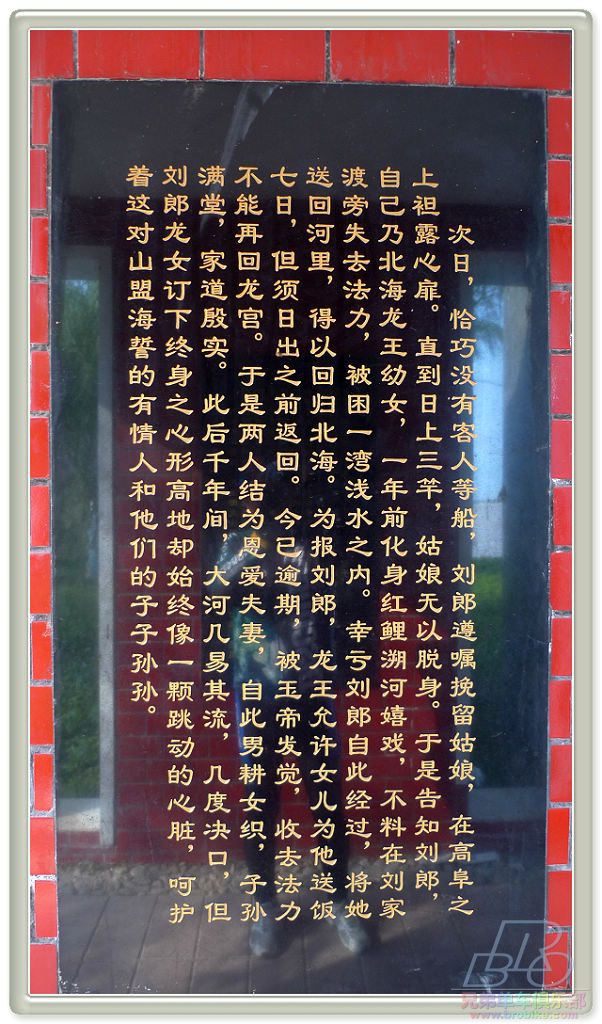 次日，恰巧没有客人等船，刘郎遵嘱挽留姑娘，在高阜之
上袒露心扉。直到日上三竿，姑娘无以脱身。于是告知刘郎，
自己乃北海龙王幼女，一年前化身红鲤溯河嬉戏，不料在刘家
渡旁失去法力，被困一湾浅水之内。幸亏刘郎自此经过，将她
送回河里，得以回归北海。为报刘郎，龙王允许女儿为他送饭
七日，但须日出之前返回。今已逾期，被玉帝发觉，收去法力
不能再回龙宫。于是两人结为恩爱夫妻，自此男耕女织，子孙
满堂，家道殷实。此后千年间，大河几易其流，几度决口，但
刘郎龙女订下终身之心形高地却始终像一颗跳动的心脏，呵护
着这对山盟海誓的有情人和他们的子子孙孙。
BRO
兄弟单车俱乐部
www.brobike.com